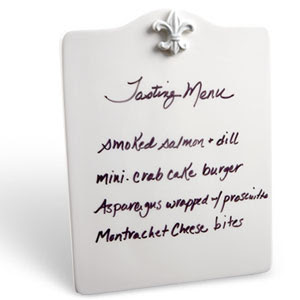 Tasting Menu
smoked salmon + dill
mini. crab cake burger
Asparagus wrapped w/ prosciutto
Montrachet Cheese bites